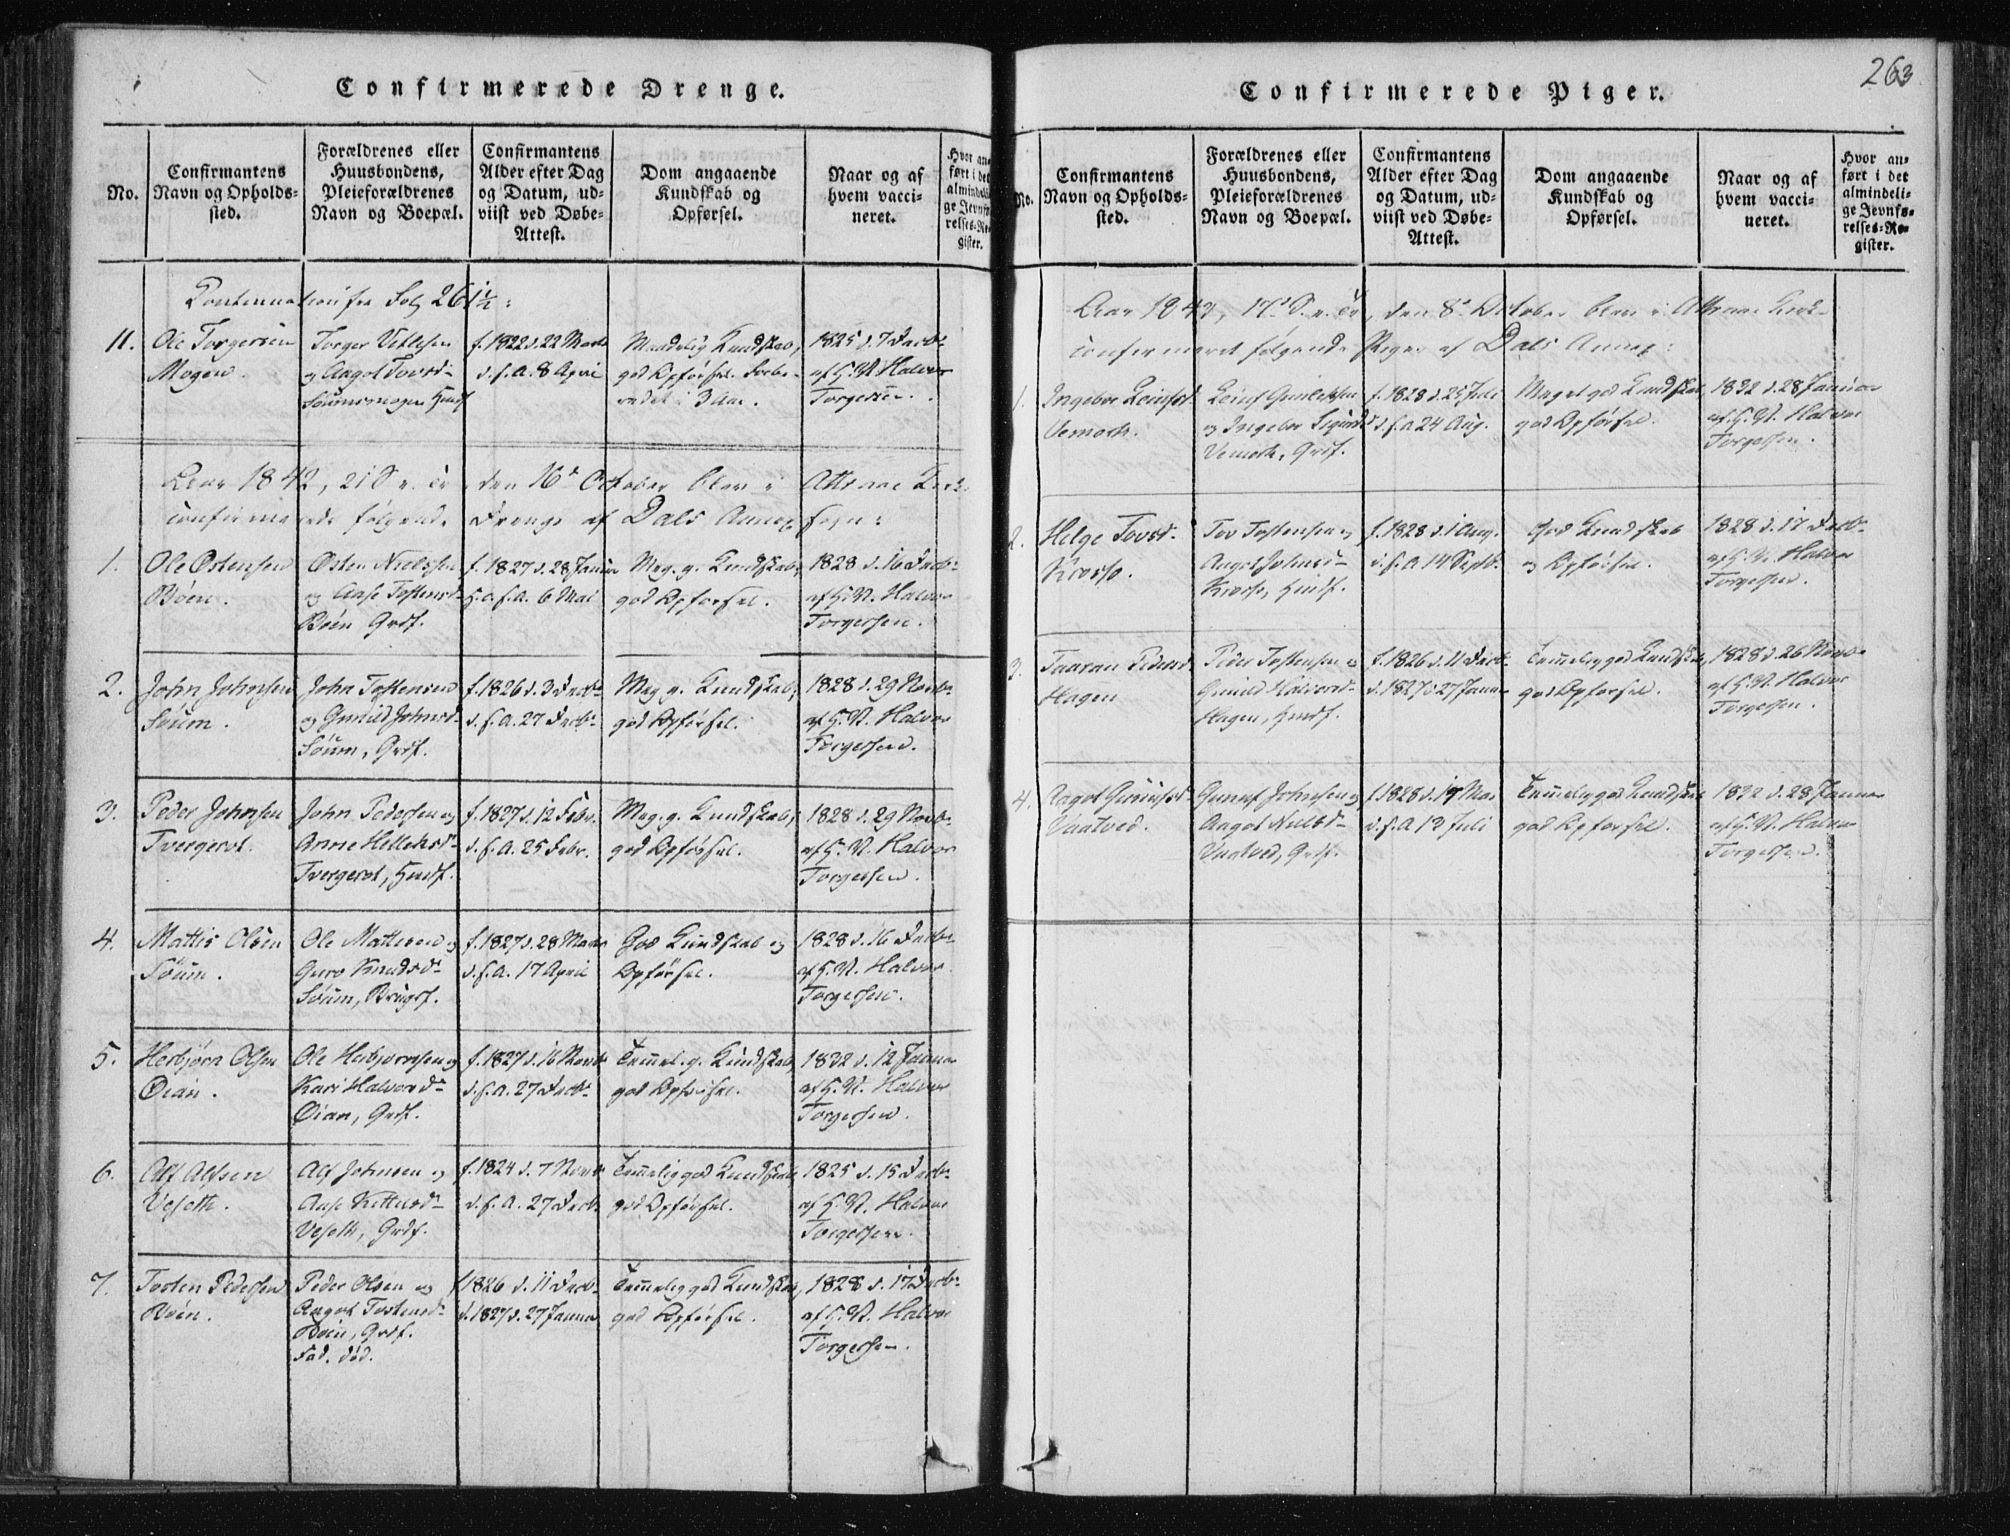 Confirmerede Drenge.
No.
Confirmantens
Navn og Opholds-
sted.
Forældrenes eller
Huusbondens,
Pleieforældrenes
Navn og Boepæl.
Confirmantens
Alder efter Dag
og Datum, ud-
viist ved Døbe-
Attest.
Dom angaaende
Kundskab og
Opførsel.
Naar og af
hvem vacci-
neret.
Hvor an-
ført i det
almindeli-
ge Jevnfø-
relses-Re-
gister.
Continuation fra Fol 261½:
11.
Ole Torgersen
Mogen.
Torger Vetlesen
og Aagot Tovsd-
f. 1822 d. 22 Marts
d. s. A. 8 April
Maadelig Kundskab,
god Opførsel. Forbe-
redet i 3 Aar.
1825 d. 7 Decbr
af G. N. Halvor
Torgersen.
Aar 1842, 21 S. e. Tr. den 16de October blev i Attraae Kirke
confirmerede følgende Drenge af Dals Annex Sogn:
1.
Ole Østensen
Böen.
Østen Nielsen
og Aase Tostensd
Böen Grdf.
f. 1827 d. 28 Januar
h. o. s. A. 6 Mai
Meg. g. Kundskab,
god Opførsel.
1828 d. 16 Decbr
af G. N. Halvor
Torgersen.
2.
John Johnsen
Söum.
John Tostensen
og Gunild Johnsd-
Söum, Grdf.
f. 1826 d. 3 Decbr
d. s. A. 27 Decbr
Meg. g. Kundskab,
god Opførsel.
1828 d. 29 Novbr
af G. N. Halvor
Torgersen.
3.
Peder Johnsen
Tvergrot.
John Pedersen og
Anne Helleksd-
Tvergrot, Hmdf.
f. 1827 d. 12 Febr.
d. s. A. 25 Febr.
Meg. g. Kundskab,
god Opførsel.
1828 d. 29 Novbr
af G. N. Halvor
Torgersen.
4.
Mattis Olsen
Söum.
Ole Mattesen og
Guro Knudsd-
Söum, Brugsf.
f. 1827 d. 28 Marts
d. s. A. 17 April
God Kundskab og
Opførsel.
1828 d. 16 Decbr
af G. N. Halvor
Torgersen.
5.
Herbjörn Olsen
Öian.
Ole Herbjornsen og
Kari Halvorsd-
Öian, Grdf.
f. 1827 d. 16 Novbr
d. s. A. 27 Decbr
Temmel. g. Kundskab,
god Opførsel.
1832 d. 12 Januar
af G. N. Halvor
Torgersen.
6.
Alf Alfsen
Veseth.
Alf Johnsen og
Aase Kittilsd-
Veseth, Grdf.
f. 1824 d. 7 Novbr
d. s. A. 27 Decbr
Temmelig god Kundskab
god Opførsel.
1825 d. 15 Decbr
af G. N. Halvor
Torgersen.
7.
Tosten Pedersen
Böen.
Peder Olsen og
Aagot Tostensd-
Böen, Grdf.
Fad. död.
f. 1826 d. 11 Decbr
d. 1827 d. 27 Januar
Temmelig god Kundskab,
god Opførsel.
1828 d. 17 Decbr
af G. N. Halvor
Torgersen.
263
Confirmerede Piger.
No.
Confirmantens
Navn og Opholds-
sted.
Forældrenes eller
Huusbondens,
Pleieforældrenes
Navn og Boepæl.
Confirmantens
Alder efter Dag
og Datum, ud-
viist ved Døbe-
Attest.
Dom angaaende
Kundskab og
Opførsel.
Naar og af
hvem vacci-
neret.
Hvor an-
ført i det
almindeli-
ge Jevnfø-
relses-Re-
gister.
Aar 1843, 17de S. e. Tr, den 8de October blev i Attraae Kirke
confirmeret følgende Piger af Dals Annex:
1.
Ingebor Leifsd.
Vemork.
Leif Gunleksen
og Ingebor Sigurdsd
Vemork, Grdf.
f. 1828 d. 25 Juli
d. s. A 24 Aug.
Meget god Kundskab,
god Opførsel.
1832 d. 28 Januar
af G. N. Halvor
Torgersen.
2.
Helge Tovsd.
Krosso.
Tov Tostensen og
Aagot Johnsd-
Krosso, Hmdf.
f. 1828 d. 1 Aug.
d. s. A. 14 Septbr.
God Kundskab
og Opførsel.
1828 d. 17 Decbr
af G. N. Halvor
Torgersen.
3.
Taaran Pedersd.
Hagen
Peder Tostensen og
Gunild Halvorsd-
Hagen, Hmdf.
f. 1826 d. 11 Decbr.
d. 1827 d. 27 Januar
Temmelig god Kundskab,
god Opførsel.
1828 d. 26 Novbr
af G. N. Halvor
Torgersen.
4.
Aagot Gunufsd
Vaatved.
Gunuf Johnsen og
Aagot Nielsd-
Vaatved, Grdf.
f. 1828 d. 19 Mai
d. s. A 13 Juli
Temmelig god Kundskab
god Opførsel.
1832 d. 28 Januar
af G. N. Halvor
Torgersen.